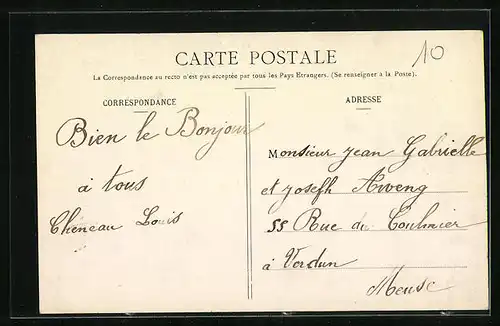 CARTE POSTALE
10
La Correspondance au recto n'est pas acceptée par tous les Pays Etrangers. (Se renseigner à la Poste).
CORRESPONDANCE
Bien le Bonjour
à tous
Cheneau Louis
ADRESSE
Monsieur Jean Gabrielle
et joseph Aweng
55 Rue du Coulmier
à Verdun
Meuse